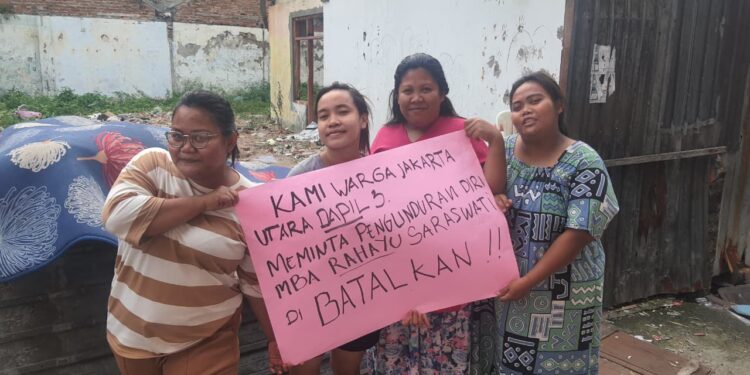 KAMI WARGA JAKARTA
UTARA DAPIL 3.
MEMINTA PENGUNDURAN DIRI
MBA RAHAYU SARASWATI
DI BATALKAN !!